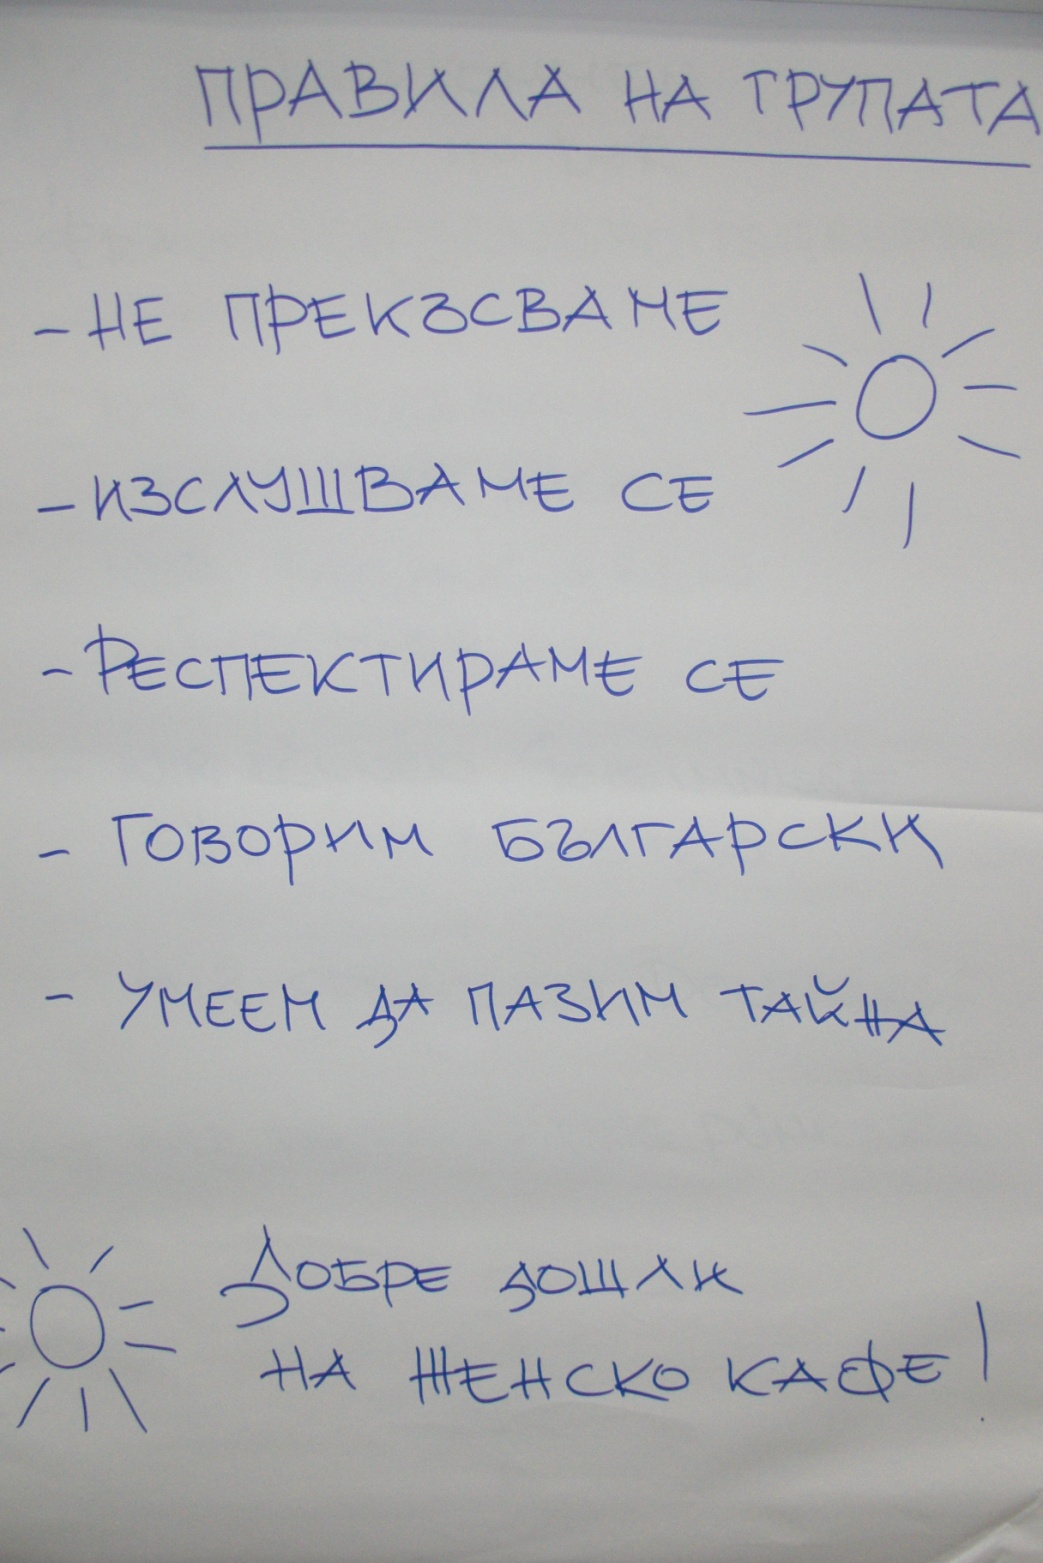 ПРАВИЛА НА ГРУПАТА
- НЕ ПРЕКЪСВАМЕ
- ИЗСЛУШВАМЕ СЕ
- РЕСПЕКТИРАМЕ СЕ
- ГОВОРИМ БЪЛГАРСКИ
- УМЕЕМ ДА ПАЗИМ ТАЙНА
ДОБРЕ ДОШЛИ
НА ЖЕНСКО КАФЕ!